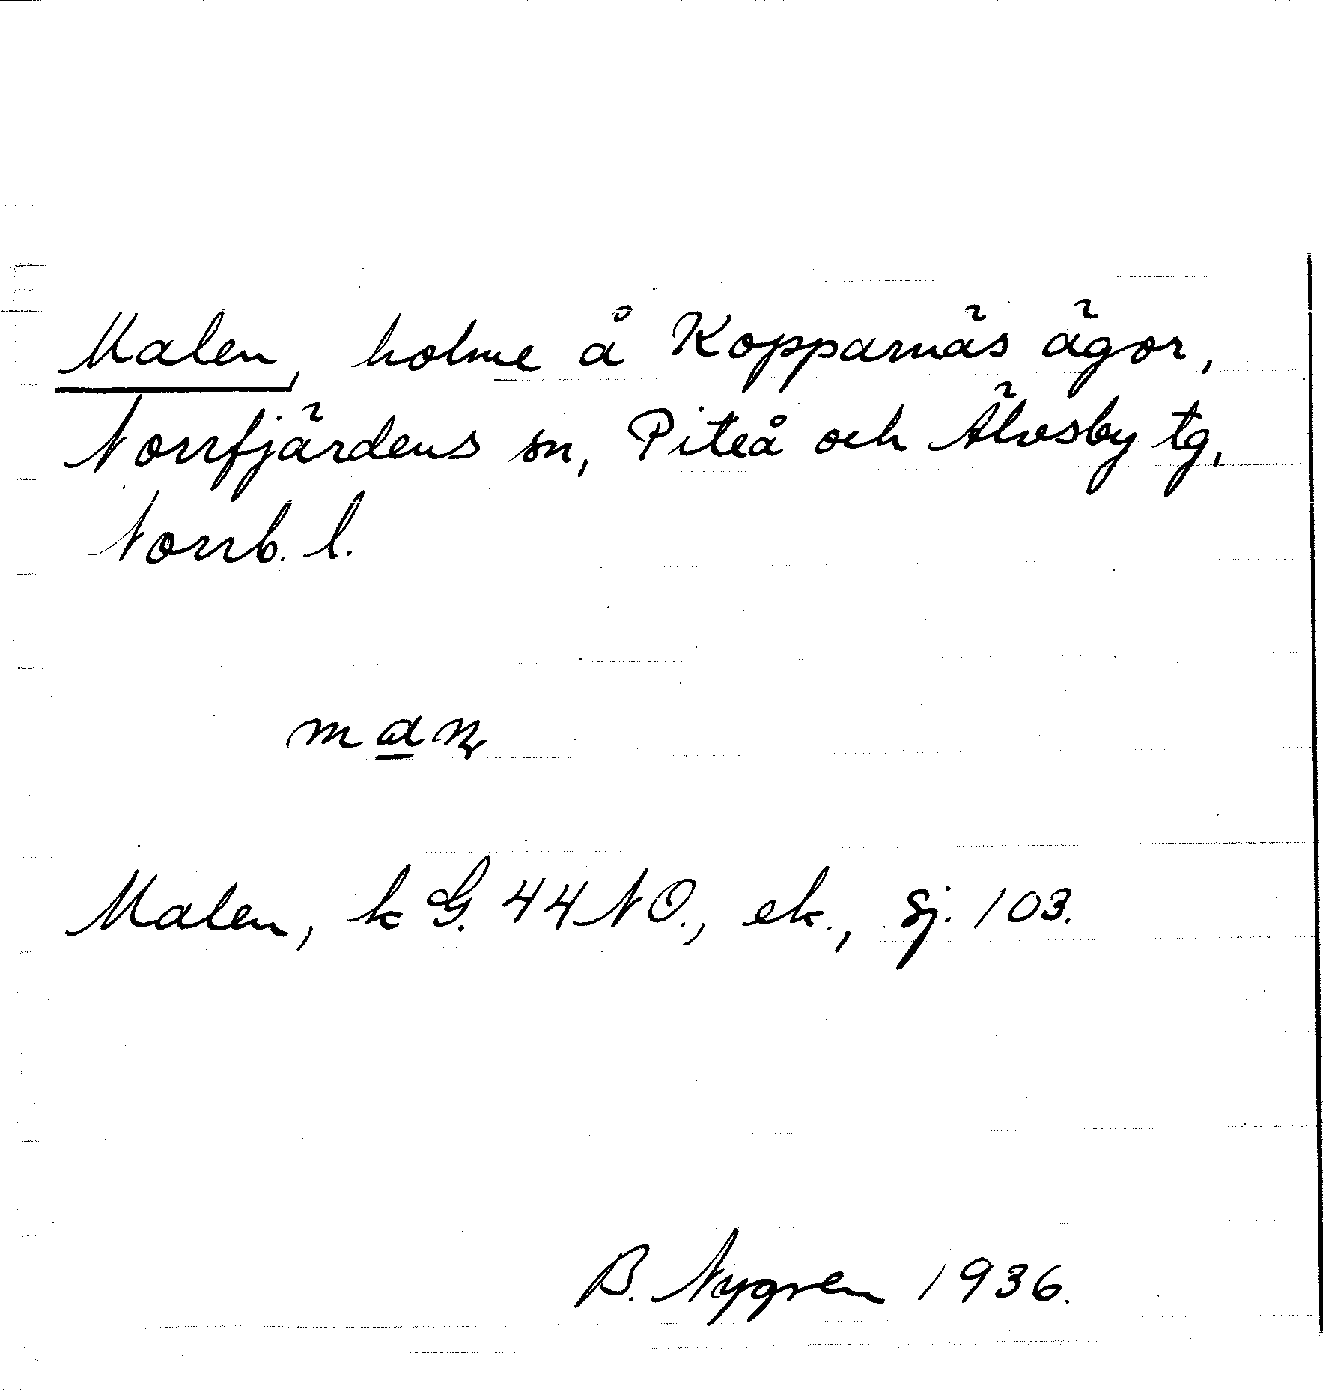 Malen, holme å Kopparnäs ägor,
Norrfjärdens sn, Piteå och Älvsby tg,
Norrb. l.
Malen, k G. 44 NO., ek., sj. 103.
B. Nygren 1936.